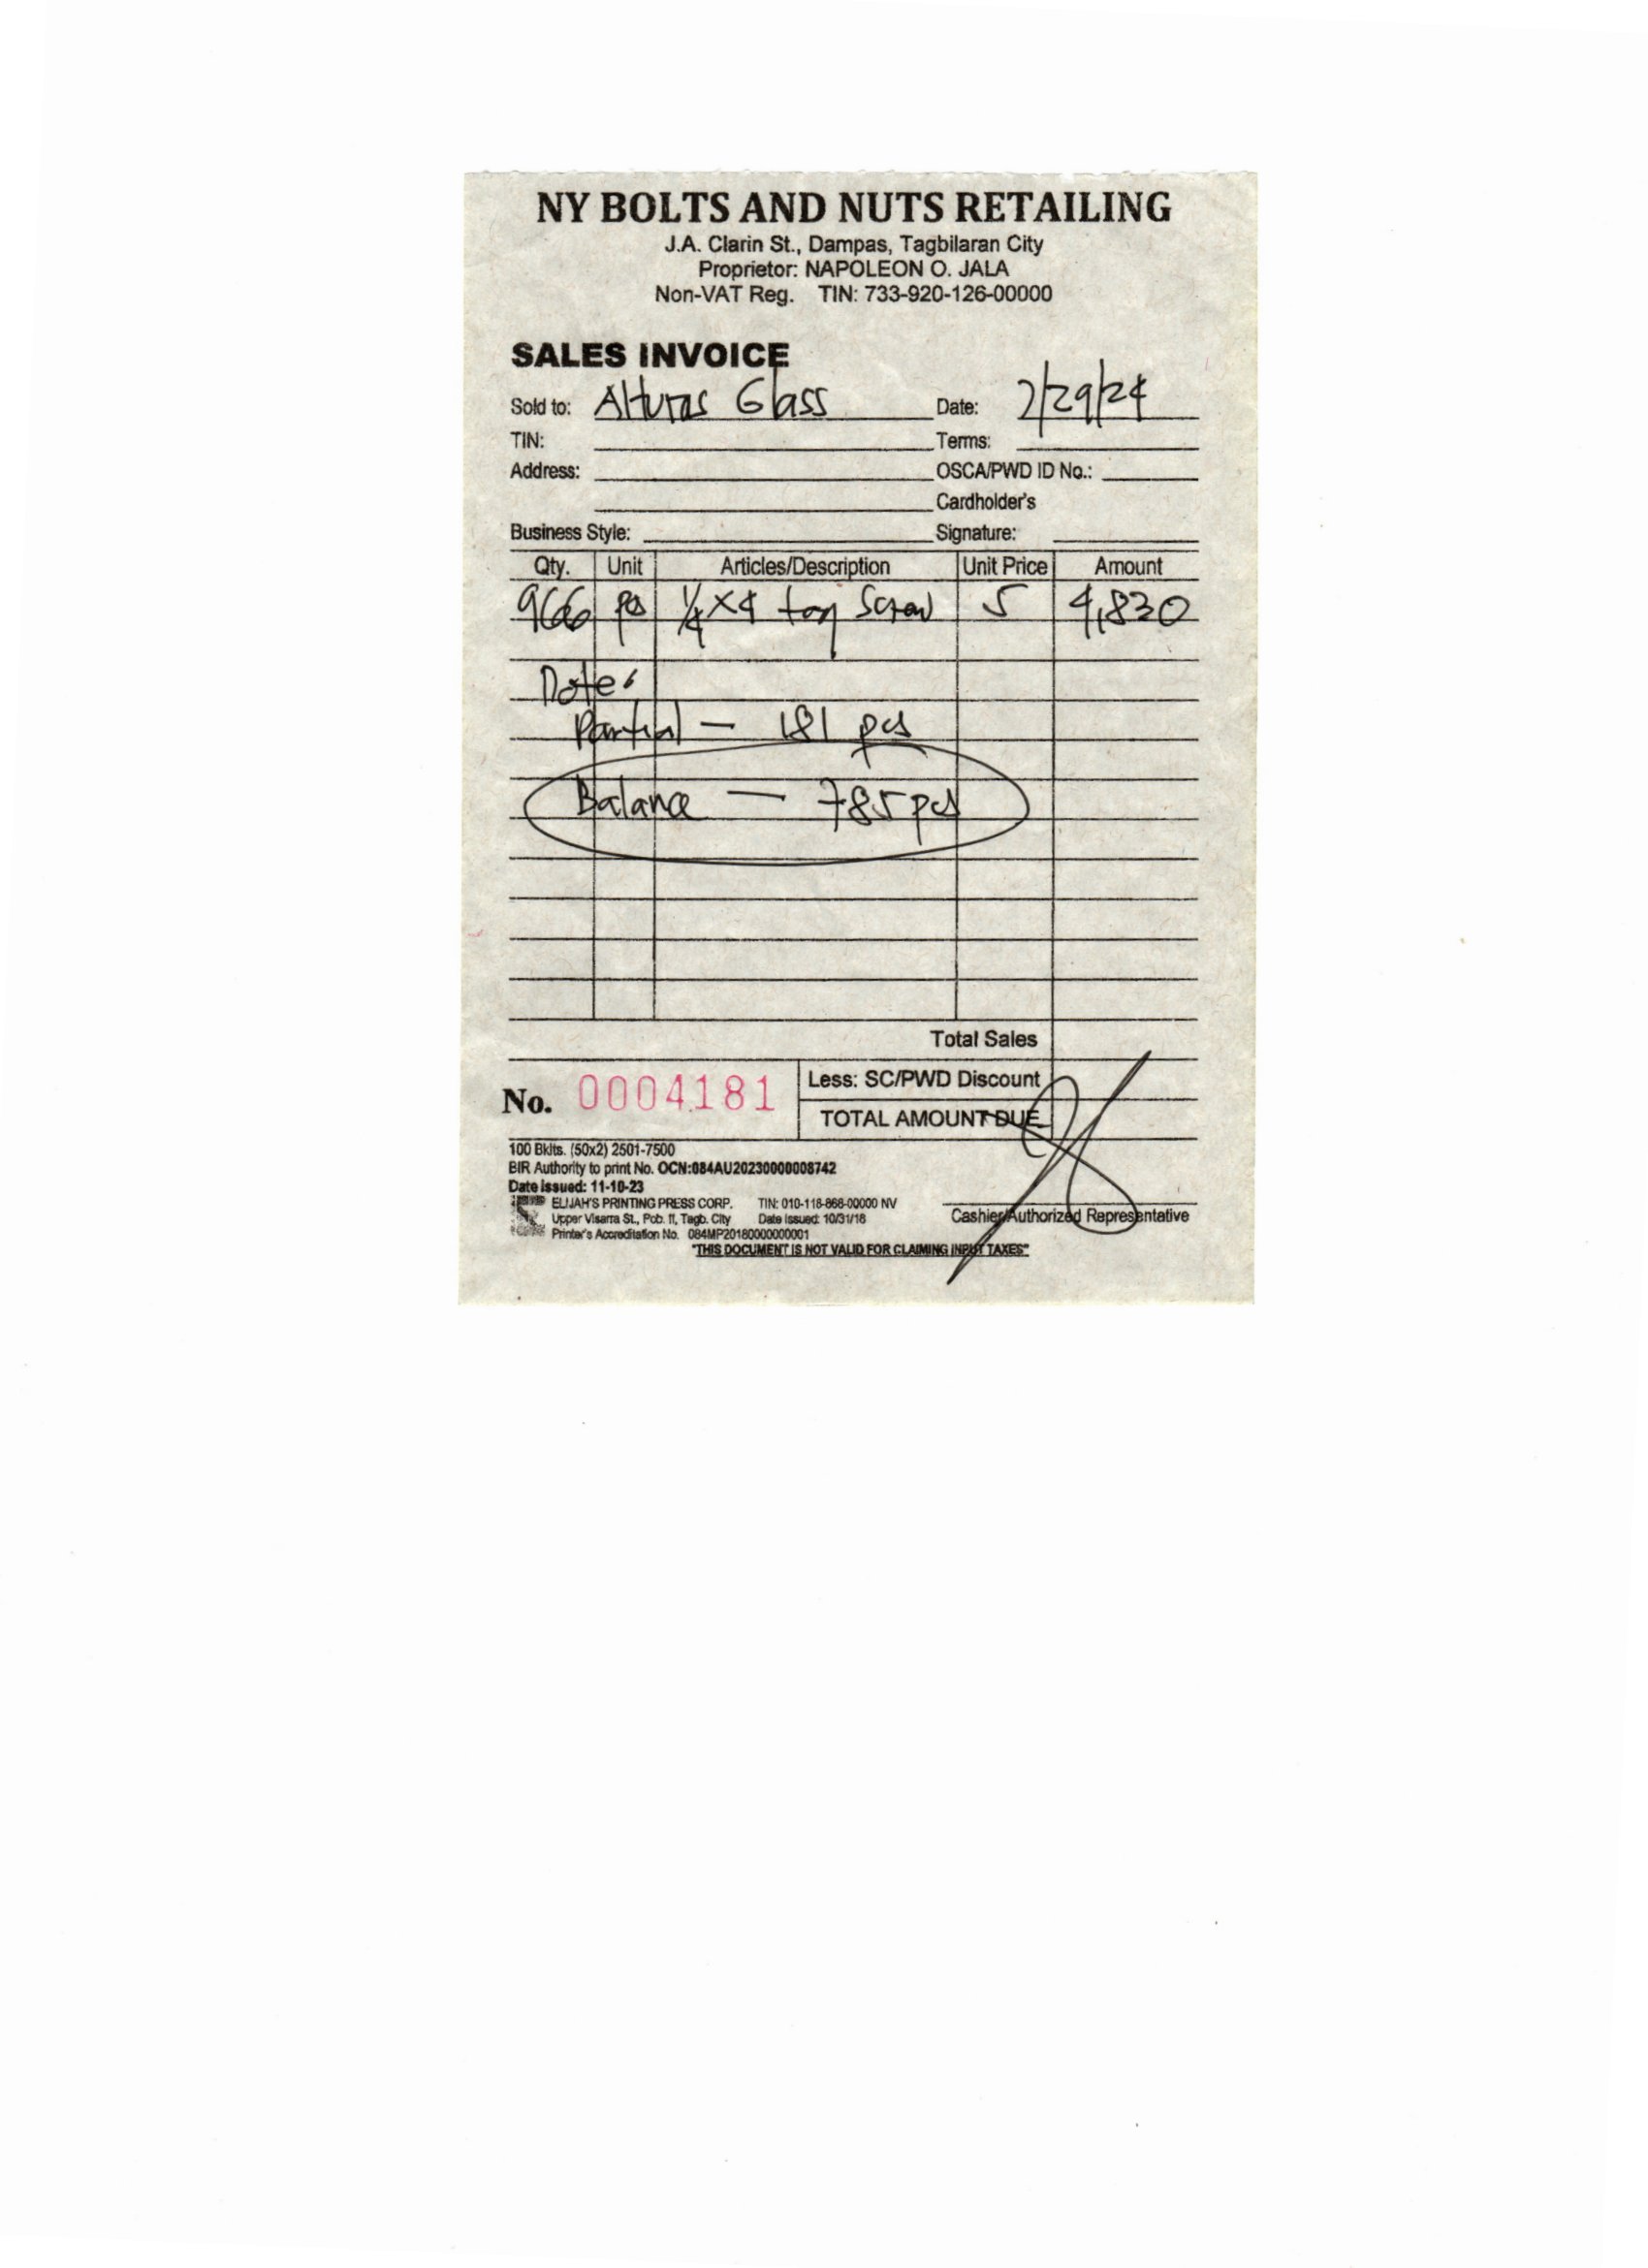 NY BOLTS AND NUTS RETAILING
J.A. Clarin St., Dampas, Tagbilaran City
Proprietor: NAPOLEON O. JALA
Non-VAT Reg. TIN: 733-920-126-00000
SALES INVOICE
Sold to: Alturas Glass Date: 2/29/24
TIN: Terms:
Address: OSCA/PWD ID No.:
Cardholder's
Business Style: Signature:
Qty. Unit Articles/Description Unit Price Amount
966 pcs 1/4 x 4 Screw 5 4,830
Note:
Partial — 181 pcs
Balance — 785 pcs
Total Sales
No. 0004181 Less: SC/PWD Discount
TOTAL AMOUNT DUE
100 Bklts. (50x2) 2501-7500
BIR Authority to print No. OCN:084AU20230000008742
Date Issued: 11-10-23
ELIJAH'S PRINTING PRESS CORP. TIN: 010-118-868-00000 NV
Upper Visarra St., Pob. II, Tagb. City Date Issued: 10/31/18
Printer's Accreditation No. 084MP20180000000001
Cashier/Authorized Representative
"THIS DOCUMENT IS NOT VALID FOR CLAIMING INPUT TAXES"